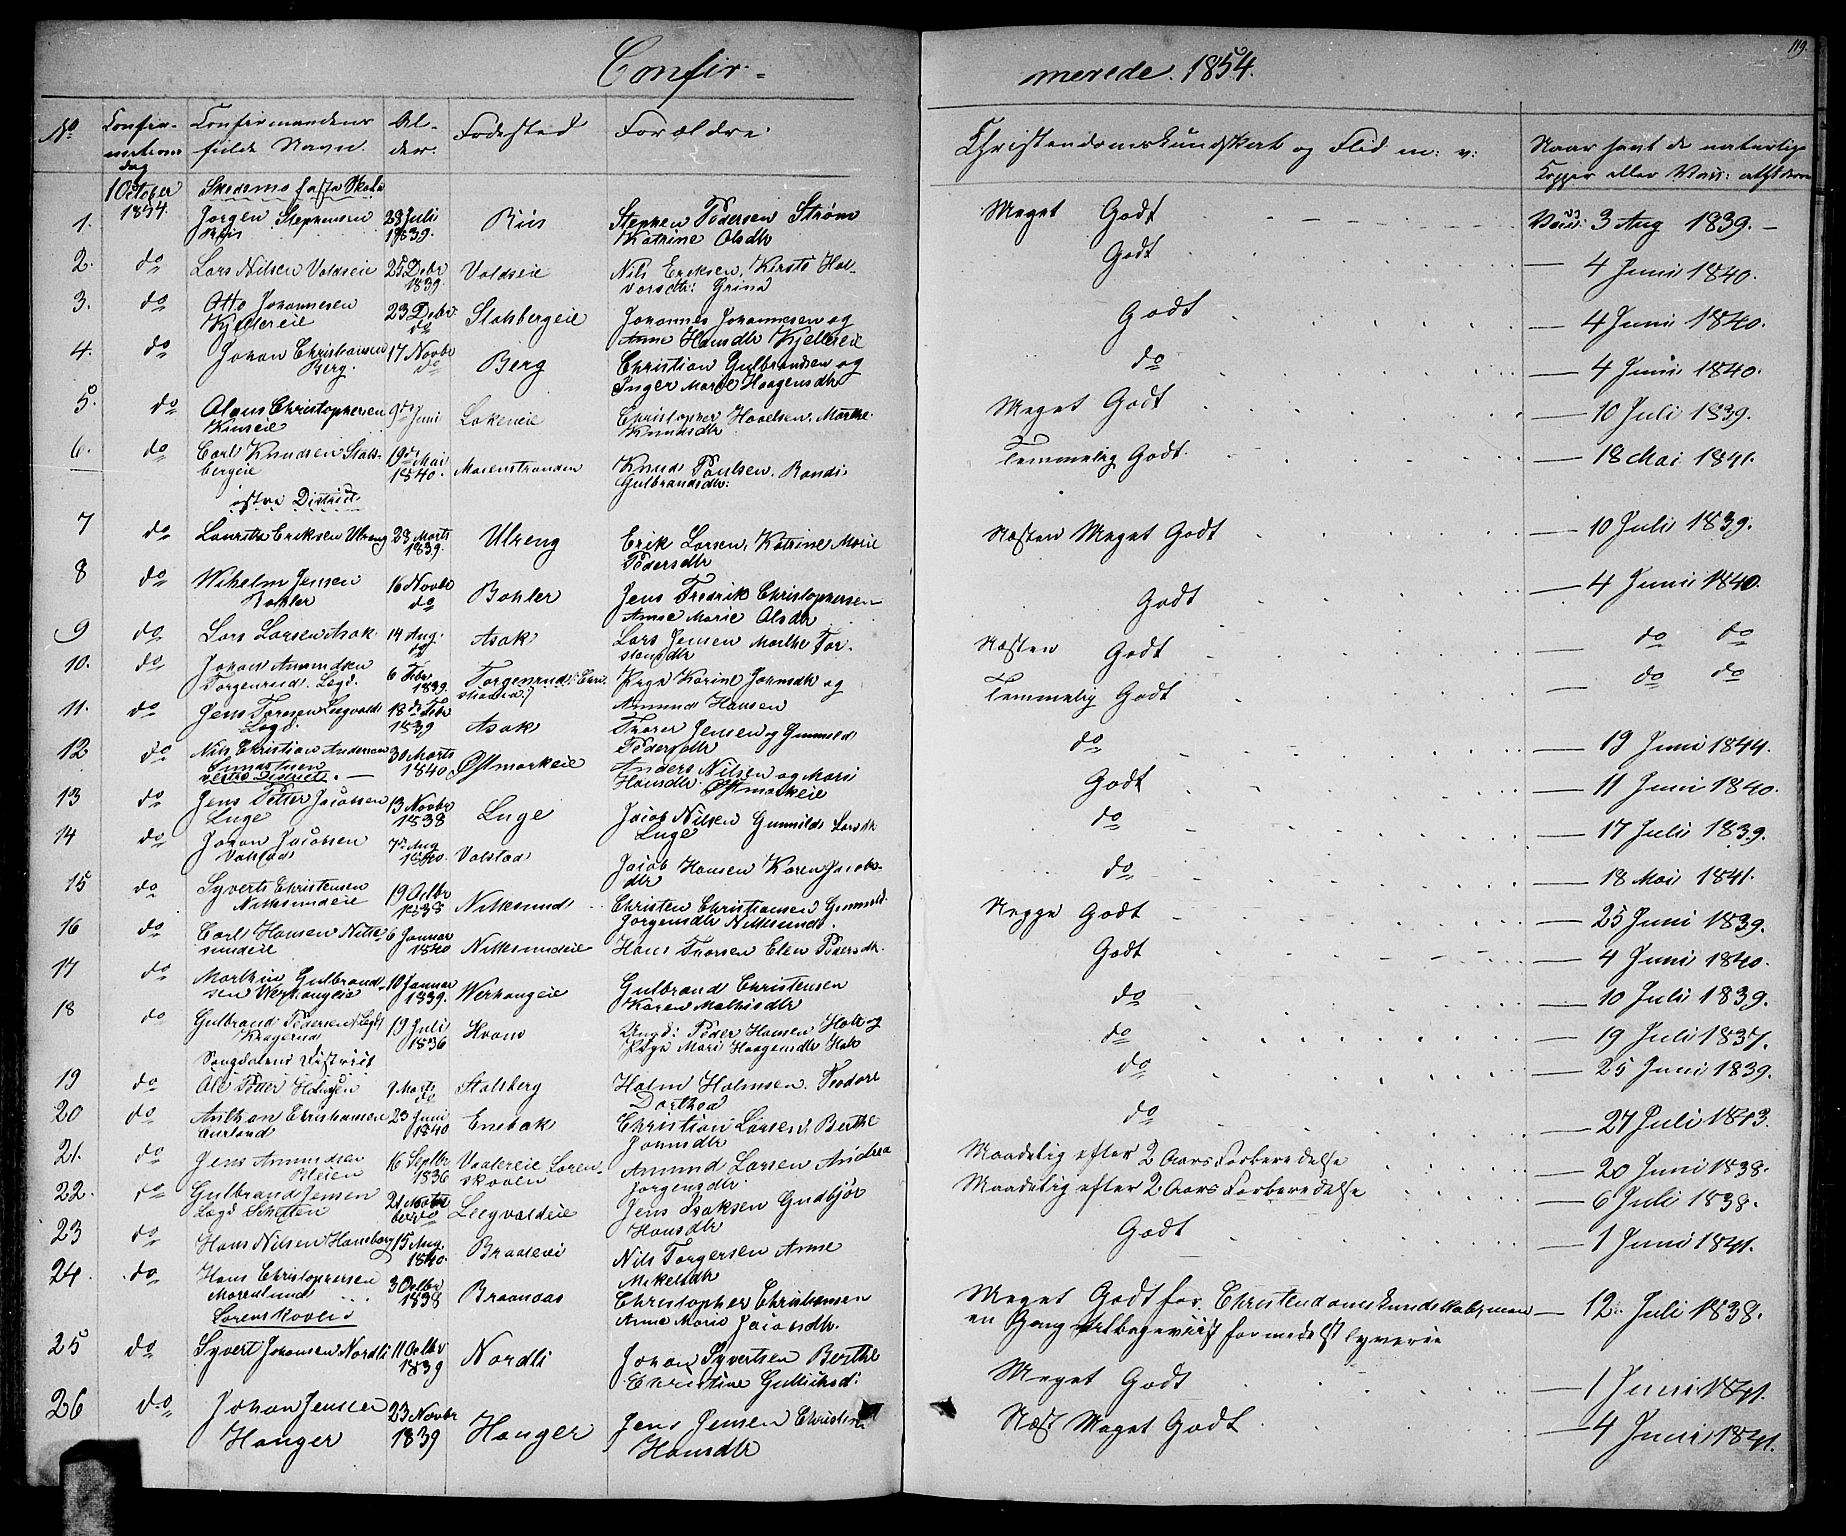 Confir-
merede. 1854.
119.
No
Confir-
mations
dag
Confirmandens
fulde Navn.
Al-
der.
Fødested
Forældre.
Christendomskundskab og Flid m: v:
Naar havt de naturlige
Kopper eller Vacc:
1 October
1854.
Skedsmo faste Skole
1. Jørgen Stephensen 28 Juli Riis Stephen Pedersen Strøm Meget Godt Vacc: 3 Aug 1839.
Riis 1839. Katrine Olsdtr
2. do Lars Nilsen Valdseie 25 Debr Valdseie Nils Eriksen, Kirsti Hal- Godt 4 Juni 1840.
1839. vorsdtr: Grina
3. do Otto Johannesen 23 Debr. Stalsbergeie Johannes Johannesen og Godt 4 Juni 1840.
Kjellereie do Anne Hansdtr Kjellereie
4. do Johan Christiansen 17 Novbr Berg Christian Gulbrandsen og do 4 Juni 1840.
Berg. do Inger Marie Haagensdtr
5. do Christophersen 9de Juni Lakeneie Christopher Hovelsen, Marthe Meget Godt 10 Juli 1839.
Knudsdtr
6. do Carl Knudsen Stals- 19de Mai Marenstranden Knud Paulsen, Randi Temmelig Godt. 18 Mai 1841.
bergeie 1840. Gulbrandsdtr:
østre District.
7 do Lauritz Eriksen Ulreng 23 Marts Ulreng Erik Larsen, Katrine Marie Næsten Meget Godt 10 Juli 1839.
1839. Pedersdtr
8 do Wilhelm Jensen 16 Novbr Bøhler Jens Fredrik Christophersen Godt 4 Juni 1840.
Bøhler do Anne Marie Olsdtr
9 do Lars Larsen Asak 14 Aug. Asak Lars Jensen Marthe Tor- Næsten Godt do do
do stensdtr
10. do Johan Amundsen 6 Febr Torgenrud Pige Karine Johnsdtr og Temmelig Godt do do
Torgenrud. Lægd. 1839. Amund Hansen
11. do Jens Toresen Leegvolds 13de Febr Asak Thorer Jensen og Gunnild do 19 Juni 1844.
Lægd. 1839 Pedersdtr
12 do Nils Christian Andersen 30 Marts Østmarkeie Anders Nilsen og Mari Godt 11 Juni 1840.
1840. Hansdtr. Østmarkeie
vestre District.
13 do Jens Petter Jacobsen 13 Novbr Luge Jacob Nilsen Gunnild Larsdtr do 17 Juli 1839.
Luge 1838 Luge
14 do Johan Jacobsen 7de Aug Valstad Jacob Hansen Karen Jacobs- do 18 Mai 1841.
Valstad 1840. dtr
15 do Syvert Christensen 19 Octbr Nittesund Christen Christiansen Gunnild Begge Godt 25 Juni 1839.
Nittesundeie 1838 Jørgensdtr Nittesund.
16 do Carl Hansen Nitte- 6 Januar Nittesundeie Hans Thorsen Elen Pedersdtr. Godt 4 Juni 1840.
sundeie 1840
17 do Mathias Gulbrand- 10 Januar Werhaugeie Gulbrand Christensen do 10 Juli 1839.
sen Werhaugeie 1839. Karen Mathisdtr
18 do Gulbrand Pedersen 19 Juli Kvam Ungd: Peder Hansen Holt og do 19 Juli 1837.
Kragerud 1836 Pige Mari Haagensdtr Holt
Songdalens District
19 do Ole Peder 9 Marts Stalsberg Holm Holmsen. Teodore do 25 Juni 1839.
Dorthea
20 do Anthon Christiansen 23 Juni Enebak Christian Larsen, Berthe do 27 Juli 1843.
1840 Johnsdtr
21. do Jens Amundsen 16 Septbr Vaalereie Søren- Amund Larsen Andrea Maadelig efter 2 Aars Forberedelse 20 Juni 1838.
1836 skoven Jørgensdtr.
22. do Gulbrand Jensen Leegvoldeie Jens Isaksen Gudbjør Maadelig efter 2 Aars Forberedelse 6 Juli 1838.
Lægd Schetten Hansdtr
23 do Hans Nilsen Hansborg 15 Aug Braatevi Nils Torgersen Anne Godt 1 Juni 1841.
1840. Mikelsdtr
24 do Hans Christophersen 3 Octbr Braanaas Christopher Christiansen Meget Godt for Christendomskundskab, men 12 Juli 1838.
Morenlund 1838 Anne Marie Jacobsdtr. en Gang tilbageviist formedelst tyverie
Sørenskoven
25 do Syvert Johansen Nordli 11 Octbr Nordli Johan Syvertsen Berthe Meget Godt 1 Juni 1841.
1839 Christine Gulliksd:
26 do Johan Jensen 23 Novbr Hanger Jens Jensen Christine Næst Meget Godt 4 Juni 1841.
Hanger 1839 Hansdtr